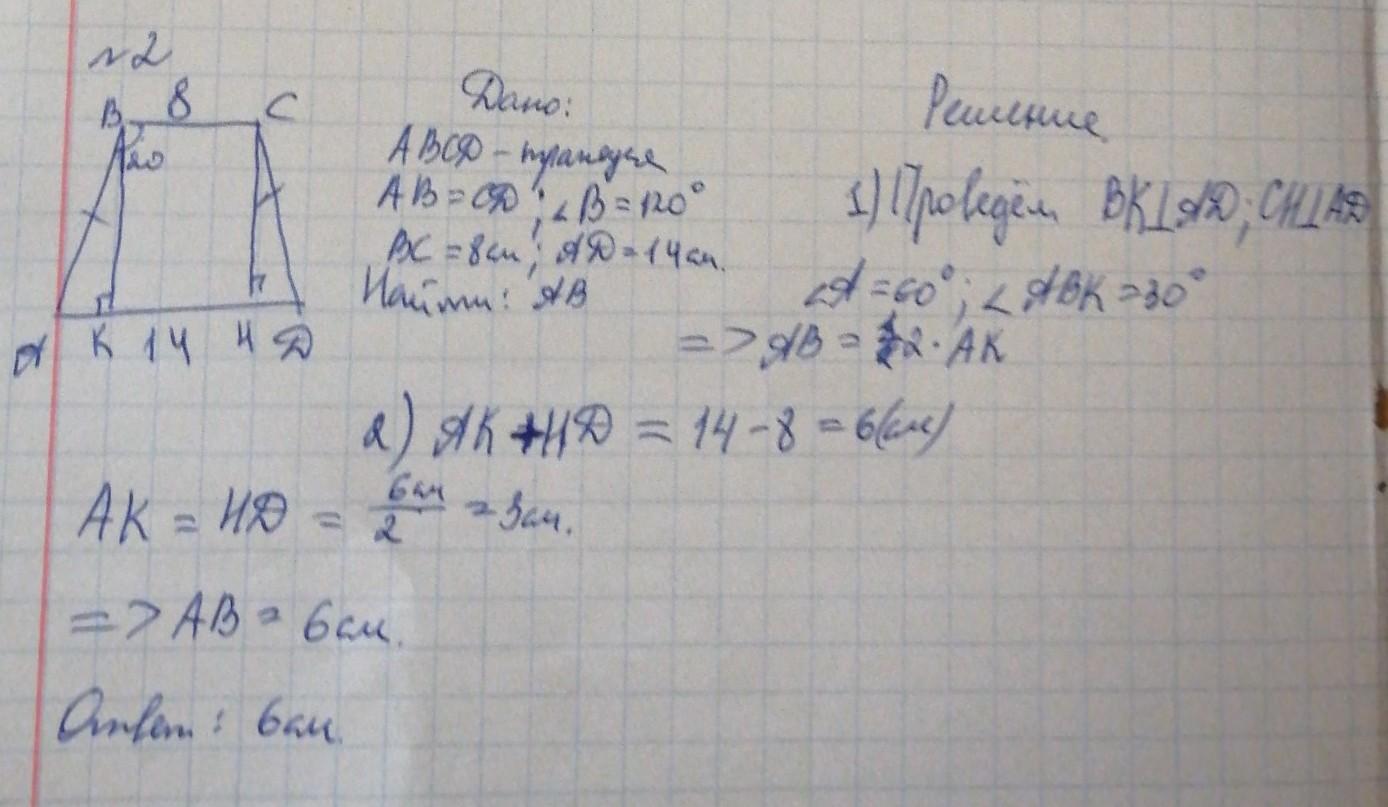 №2
B 8 C
120
A K 14 H D
Дано:
ABCD – трапеция
AB = CD ; ∠B = 120°
BC = 8см ; AD = 14см.
Найти: AB
Решение
1) Проведём BK⊥AD; CH⊥AD
∠A = 60° ; ∠ABK = 30°
=> AB = 2 · AK
2) AK + HD = 14 – 8 = 6(см)
AK = HD = 6см/2 = 3см.
=> AB = 6см.
Ответ: 6см.